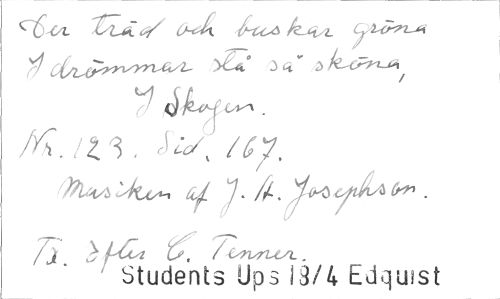 Der träd och buskar gröna
I drömmar stå så sköna,
I Skogen.
Nr. 123. Sid. 167.
Musiken af J. A. Josephson.
Tx. efter C. Tenner.
Students Ups 18/4 Edquist